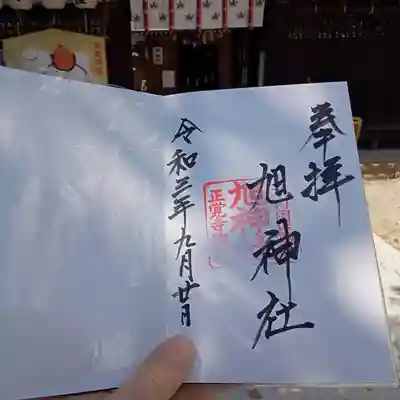 奉拝
旭神社
令和三年九月廿日
正覚寺